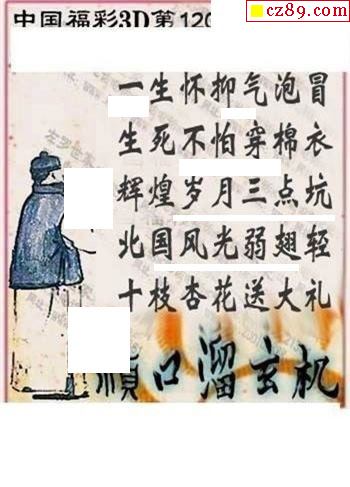 中国福彩3D第120
cz89.com
一生怀抑气泡冒
生死不怕穿棉衣
辉煌岁月三点坑
北国风光弱翅轻
十枝杏花送大礼
顺口溜玄机